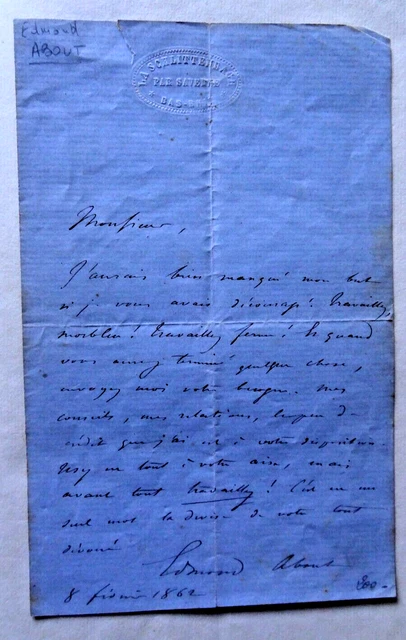 Edmond
ABOUT
LA SCHLITTENBACH
PAR SAVERNE
BAS-RHIN
Monsieur,
J'aurais bien manqué mon but
si je vous avais découragé! travaillez,
morbleu! travaillez ferme! Et quand
vous aurez terminé quelque chose,
envoyez moi votre besogne. Mes
conseils, mes relations, le peu de
crédit que j'ai est à votre disposition.
Usez en tout à votre aise, mais
avant tout travaillez! C'est en un
seul mot la devise de votre tout
dévoué
Edmond About
8 février 1862